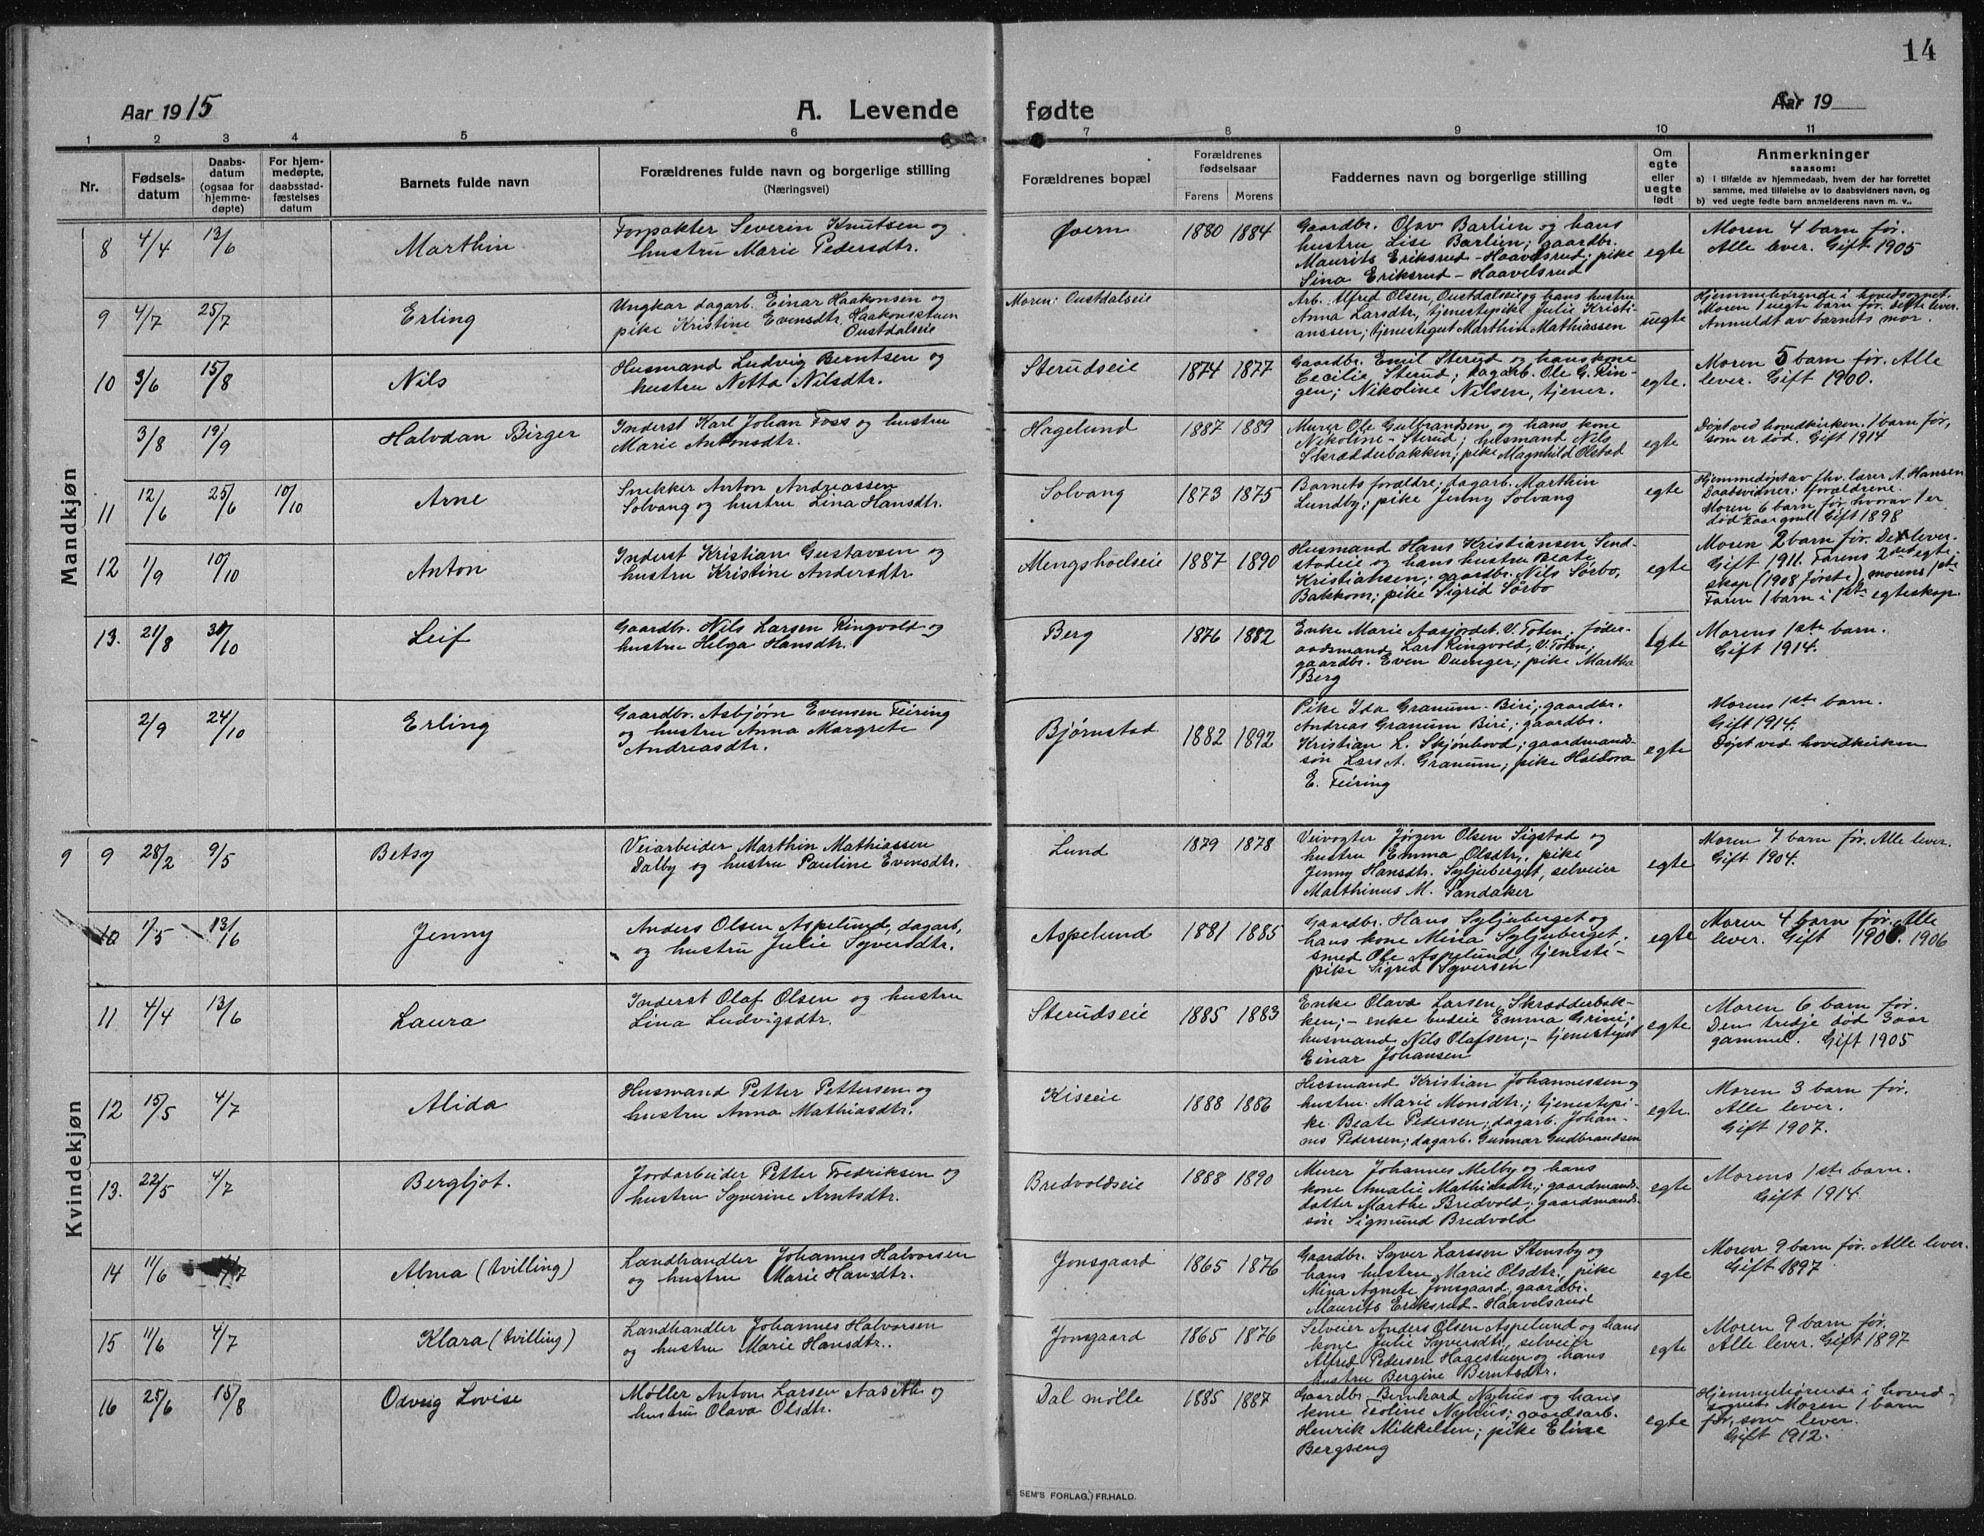 14
Aar 1915 A. Levende fødte Aar 19
1 2 3 4 5 6 7 8 9 10 11
Nr. Fødselsdatum Daabsdatum (ogsaa for hjemmedøpte) For hjemmedøpte, daabsstadfæstelses datum Barnets fulde navn Forældrenes fulde navn og borgerlige stilling (Næringsvei) Forældrenes bopæl Forældrenes fødselsaar Farens Morens Faddernes navn og borgerlige stilling Om egte eller uegte født Anmerkninger saasom:
a) I tilfælde av hjemmedaab, hvem der har forrettet samme, med tilføielse av to daabsvidners navn, og
b) ved uegte fødte barn anmelderens navn m. v..
Mandkjøn
8 4/4 13/6 Marthin
Forpakter Severin Knutsen og
hustru Marie Pedersdtr.
Øvern 1880 1884
Gaardbr. Olav Barlien og hans
hustru Lise Barlien; gaardbr.
Maurits Eriksrud-Haavelsrud; pike
Sina Eriksrud-Haavelsrud
egte
Moren 4 barn før.
Alle lever. Gift 1905
9 4/7 25/7 Erling
Ungkar dagarb. Einar Haakonsen og
pike Kristine Evensdtr. Haakonstuen
Oustdalseie
Moren: Oustdalseie
Arb. Alfred Olsen, Oustdalseie og hans hustru
Anna Larsdtr, tjenestepike Julie Kristi-
anssen; tjenestegut Marthin Mathiassen
uegte
Hjemmehørende i hovedsognet.
Moren 1 uegte barn før. dette lever.
Anmeldt av barnets mor.
10 3/6 15/8 Nils
Husmand Ludvig Berntsen og
hustru Netta Nilsdtr.
Sterudseie 1874 1877
Gaardbr. Emil Sterud og hans kone
Cecilie Sterud; dagarb. Ole G. Rin-
gen; Nikoline Nilsen, tjener.
egte.
Moren 5 barn før. Alle
lever. Gift 1900.
3/8 19/9 Halvdan Birger
Inderst Karl Johan Foss og hustru
Marie Antonsdtr.
Hagelund 1887 1889
Murer Ole Gulbrandsen og hans kone
Nikoline-Sterud; husmand Nils
Skrædderbakken; pike Magnhild Olstad
egte
Døpt ved hovedkirken. 1 barn før,
som er død. Gift 1914
11 12/6 25/6 10/10 Arne
Snekker Anton Andreassen
Solvang og hustru Lina Hansdtr.
Solvang 1873 1875
Barnets forældre; dagarb. Marthin
Lundby; pike Jenny Solvang
egte
Hjemmedøpt av fhv. lærer A. Hansen
Daabsvidner: forældrene.
Moren 6 barn før, hvorav 1 er
død Gift 1898
12 1/9 10/10 Anton
Inderst Kristian Gustavsen og
hustru Kristine Andersdtr
Mengshoelseie 1887 1890
Husmand Hans Kristiansen Send-
stadeie og hans hustru Beate
Kristiansen; gaardbr. Nils Sørbo,
Bakkom; pike Sigrid Sørbo
egte
Moren 2 barn før. De lever.
Gift 1911. Farens 2det egte-
skap (1908 første), morens 1ste
Faren 1 barn i 1ste egteskap.
13. 21/8 31/10 Leif
Gaardbr. Nils Larsen Ringvold og
hustru Helga Hansdtr.
Berg 1876 1882
Enke Marie Aasjordet V. Toten; føder-
aadsmand Lars Ringvold, V. Toten;
gaardbr. Even Duenger; pike Martha
Berg
egte
Morens 1ste barn.
Gift 1914.
2/9 24/10 Erling
Gaardbr. Asbjørn Evensen Feiring
og hustru Anna Margrete
Andreasdtr.
Bjørnstad 1882 1892
Pike Ida Granum. Biri; gaardbr.
Andreas Granum Biri; gaardbr.
Kristian L. Skjønhovd; gaardmands-
søn Lars A. Granum; pike Haldora
E. Feiring
egte
Morens 1ste barn.
Gift 1914.
Døpt ved hovedkirken
Kvindekjøn
9 9 28/2 9/5 Betsy
Veiarbeider Marthin Mathiassen
Dalby og hustru Pauline Evensdtr.
Lund 1879 1878
Veivogter Jørgen Olsen Sigstad og
hustru Emma Olsdtr, pike
Jenny Hansdtr. Syljuberget, selveier
Marthinus M. Sandaker
egte
Moren 7 barn før. Alle lever.
Gift 1904.
10 1/5 13/6 Jenny
Anders Olsen Aspelund, dagarb,
og hustru Julie Syversdtr.
Aspelund 1881 1885
Gaardbr. Hans Syljuberget og
hans kone Mina Syljuberget;
smed Ole Aspelund, tjeneste-
pike Sigrid Syversen
egte
Moren 4 barn før. Alle
lever. Gift 1906. 1906
11 4/4 13/6 Laura
Inderst Olaf Olsen og hustru
Lina Ludvigsdtr.
Sterudseie 1885 1883
Enke Olava Larsen, Skrædderbak-
ken;- enke budeie Emma Grini;
husmand Nils Olafsen;- tjenestegut
Einar Johansen
egte
Moren 6 barn før.
Den tredje død 3 aar
gammel. Gift 1905
12 15/5 4/7 Alida
Husmand Petter Pettersen og
hustru Anna Mathiasdtr.
Kiseeie 1888 1886
Husmand Kristian Johannessen og
hustru Marie Monsdtr.; tjenestepi-
ke Beate Pedersen; dagarb. Johan-
nes Pedersen; dagarb. Gunnar Gudbrandsen
egte.
Moren 3 barn før.
Alle lever.
Gift 1907.
13. 22/5 4/7 Bergljot.
Jordarbeider Petter Fredriksen og
hustru Syverine Arntsdtr.
Bredvoldseie 1888 1890
Murer Johannes Melby og hans
kone Amalie Mathiasdtr.; gaardmands-
datter Marthe Bredvold; gaardmands-
søn Sigmund Bredvold
egte
Morens 1ste barn.
Gift 1914.
14 11/6 4/7 Alma (tvilling)
Landhandler Johannes Halvorsen
og hustru Marie Hansdtr.
Jonsgaard 1865 1876
Gaardbr. Syver Larssen Stensby og
hans hustru Marie Olsdtr., pike
Mina Agnete Jonsgaard, gaardbr.
Maurits Eriksrud-Haavelsrud
egte
Moren 9 barn før. Alle lever.
Gift 1897
15 11/6 4/7 Klara (tvilling)
Landhandler Johannes Halvorsen
og hustru Marie Hansdtr..
Jonsgaard 1865 1876
Selveier Anders Olsen Aspelund og hans
kone Julie Syversdtr, selveier
Alfred Pedersen Hagestuen og hans
hustru Bergine Berntsdtr.
egte
Moren 9 barn før.
Alle lever. Gift 1897
16 25/6 15/8 Odveig Lovise
Møller Anton Larsen Aaseth og
hustru Olava Olsdtr.
Dal mølle 1885 1887
Gaardbr. Bernhard Nyhus og hans
kone Teoline Nyhus; gaardsarb.
Henrik Mikkelsen; pike Eline
Bergseng
egte
Hjemmehørende i hoved-
sognet. Moren 1 barn
før, som lever.
Gift 1912.
SEM'S FORLAG, FR.HALD.